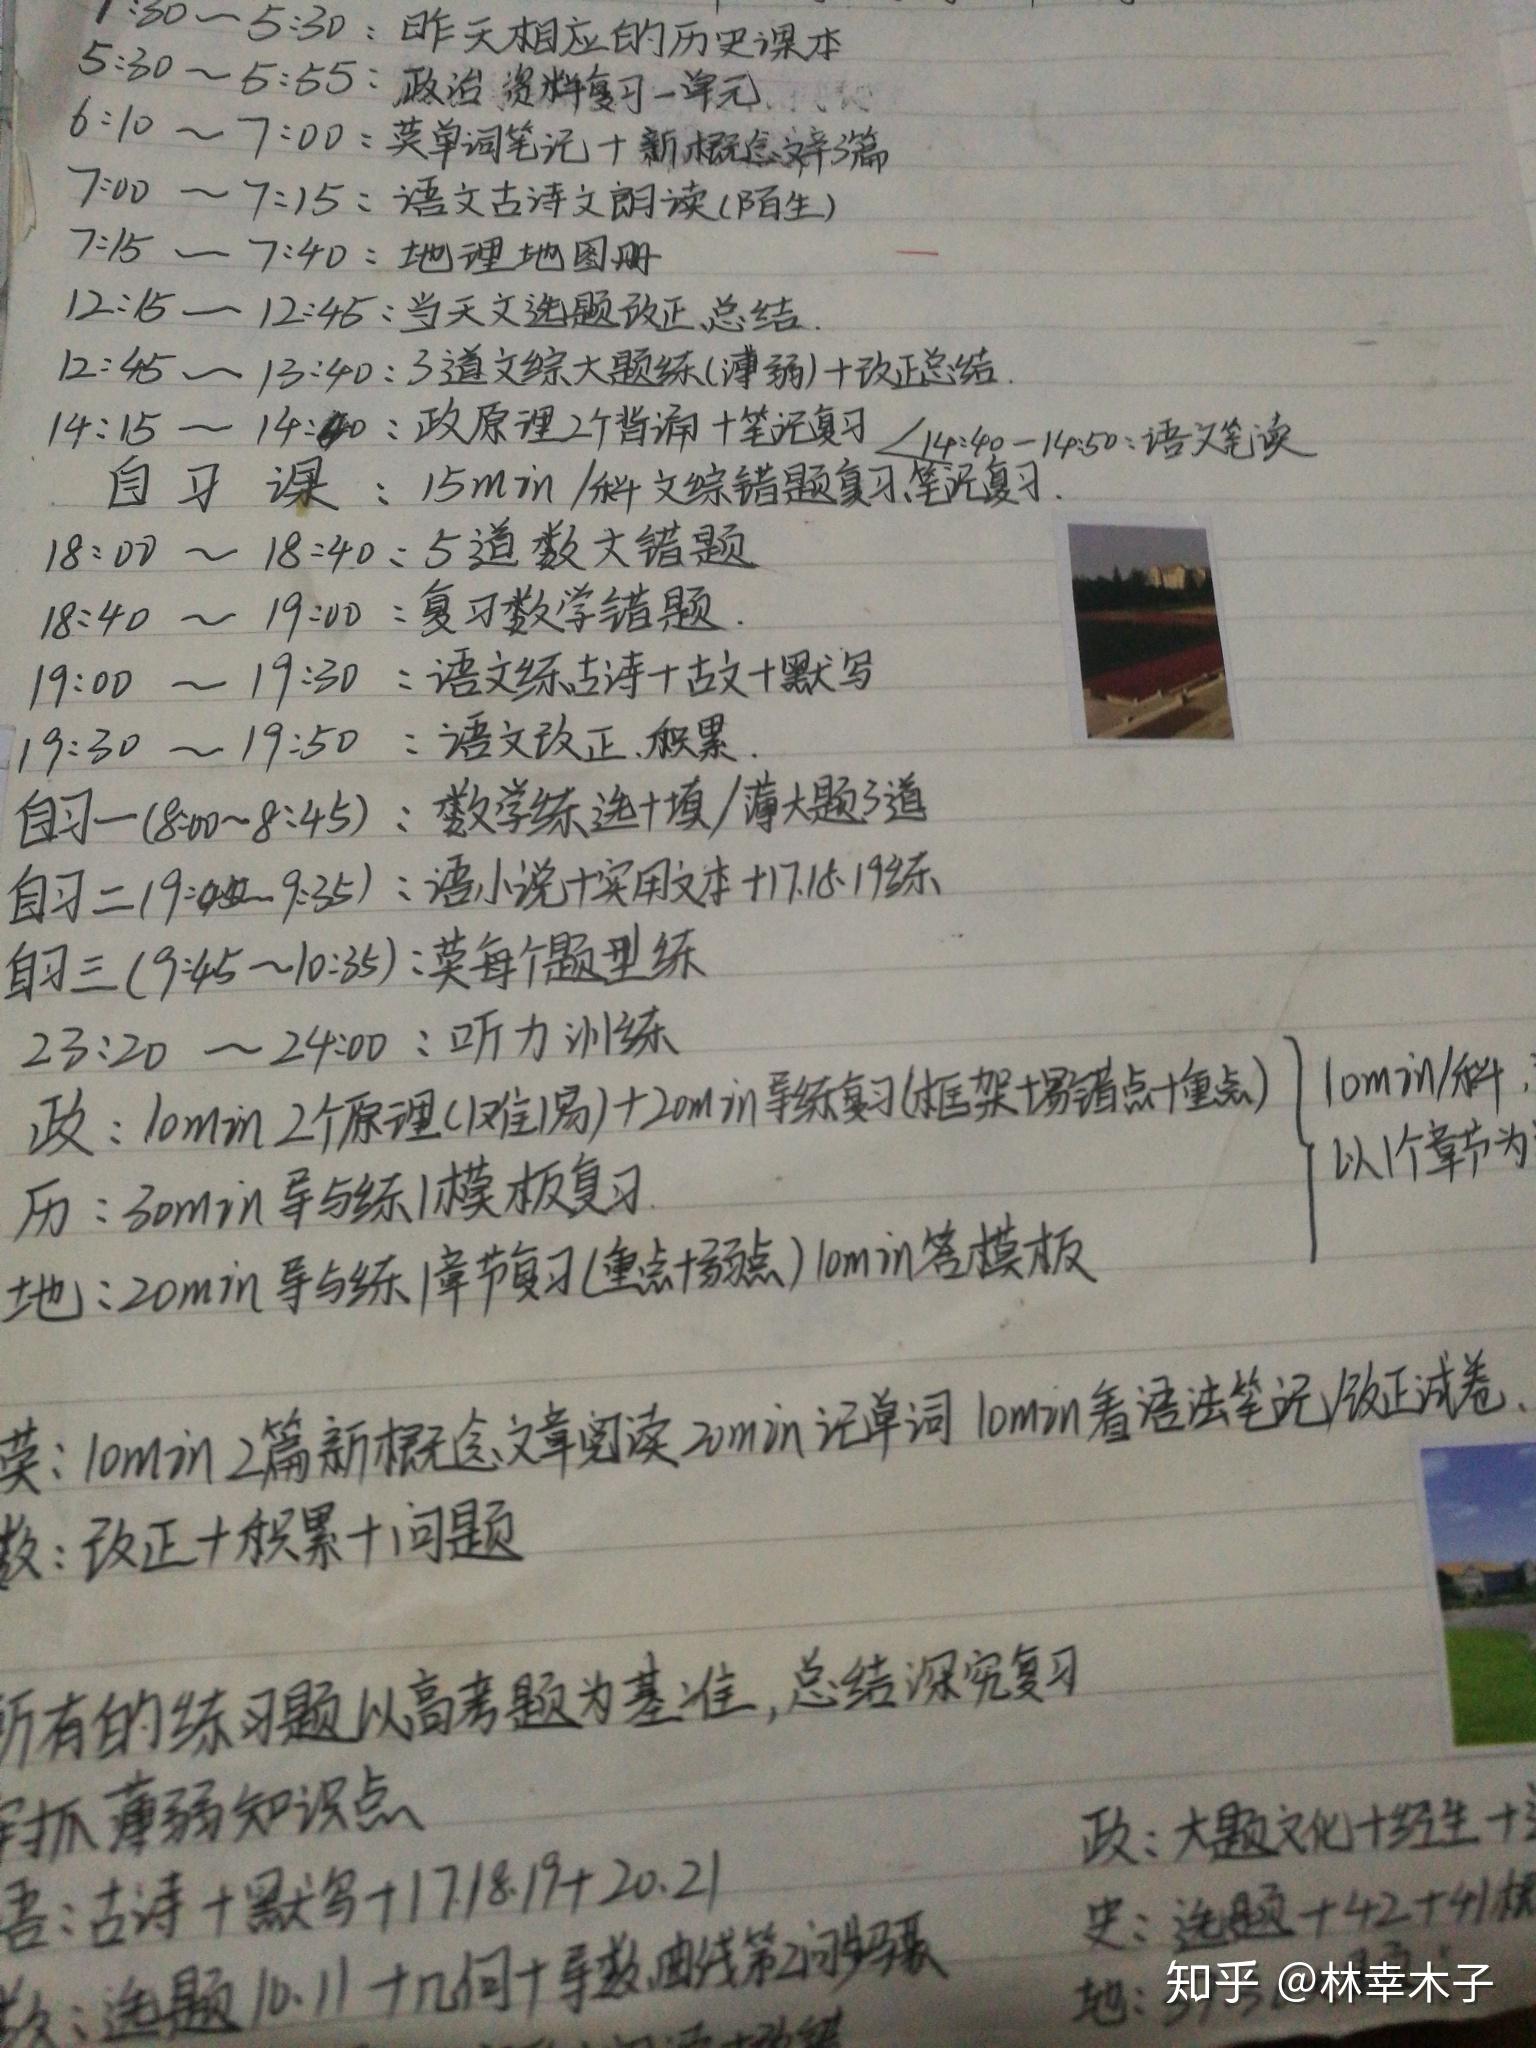 :30～5:30：昨天相应的历史课本
5:30～5:55：政治资料复习一单元
6:10～7:00：英单词笔记+新概念文章3篇
7:00～7:15：语文古诗文朗读(陌生)
7:15～7:40：地理地图册
12:15～12:45：当天文选题改正、总结.
12:45～13:40：3道文综大题练(薄弱)+改正总结.
14:15～14:40：政原理2个背诵+笔记复习 <14:40-14:50：语文笔读
自习课：15min/科文综错题复习、笔记复习.
18:00～18:40：5道数大错题
18:40～19:00：复习数学错题.
19:00～19:30：语文练古诗+古文+默写
19:30～19:50：语文改正、积累.
自习一(8:00～8:45)：数学练选+填/薄大题3道
自习二(9:～9:35)：语小说+实用文本+17.18.19练
自习三(9:45～10:35)：英每个题型练
23:20～24:00：听力训练
政：10min 2个原理(1难1易)+20min导练复习(框架+易错点+重点)
10min/科，
以1个章节为
历：30min导与练1模板复习.
地：20min导与练1章节复习(重点+弱点)10min答模板
英：10min 2篇新概念文章阅读 20min记单词 10min看语法笔记/改正试卷.
数：改正+积累+问题
所有的练习题以高考题为基准，总结深究复习
抓薄弱知识点
语：古诗+默写+17.18.19+20.21
数：选题10.11+几何+导数、曲线第2问步骤
政：大题文化+经生+
史：选题+42+41
地：
知乎 @林幸木子